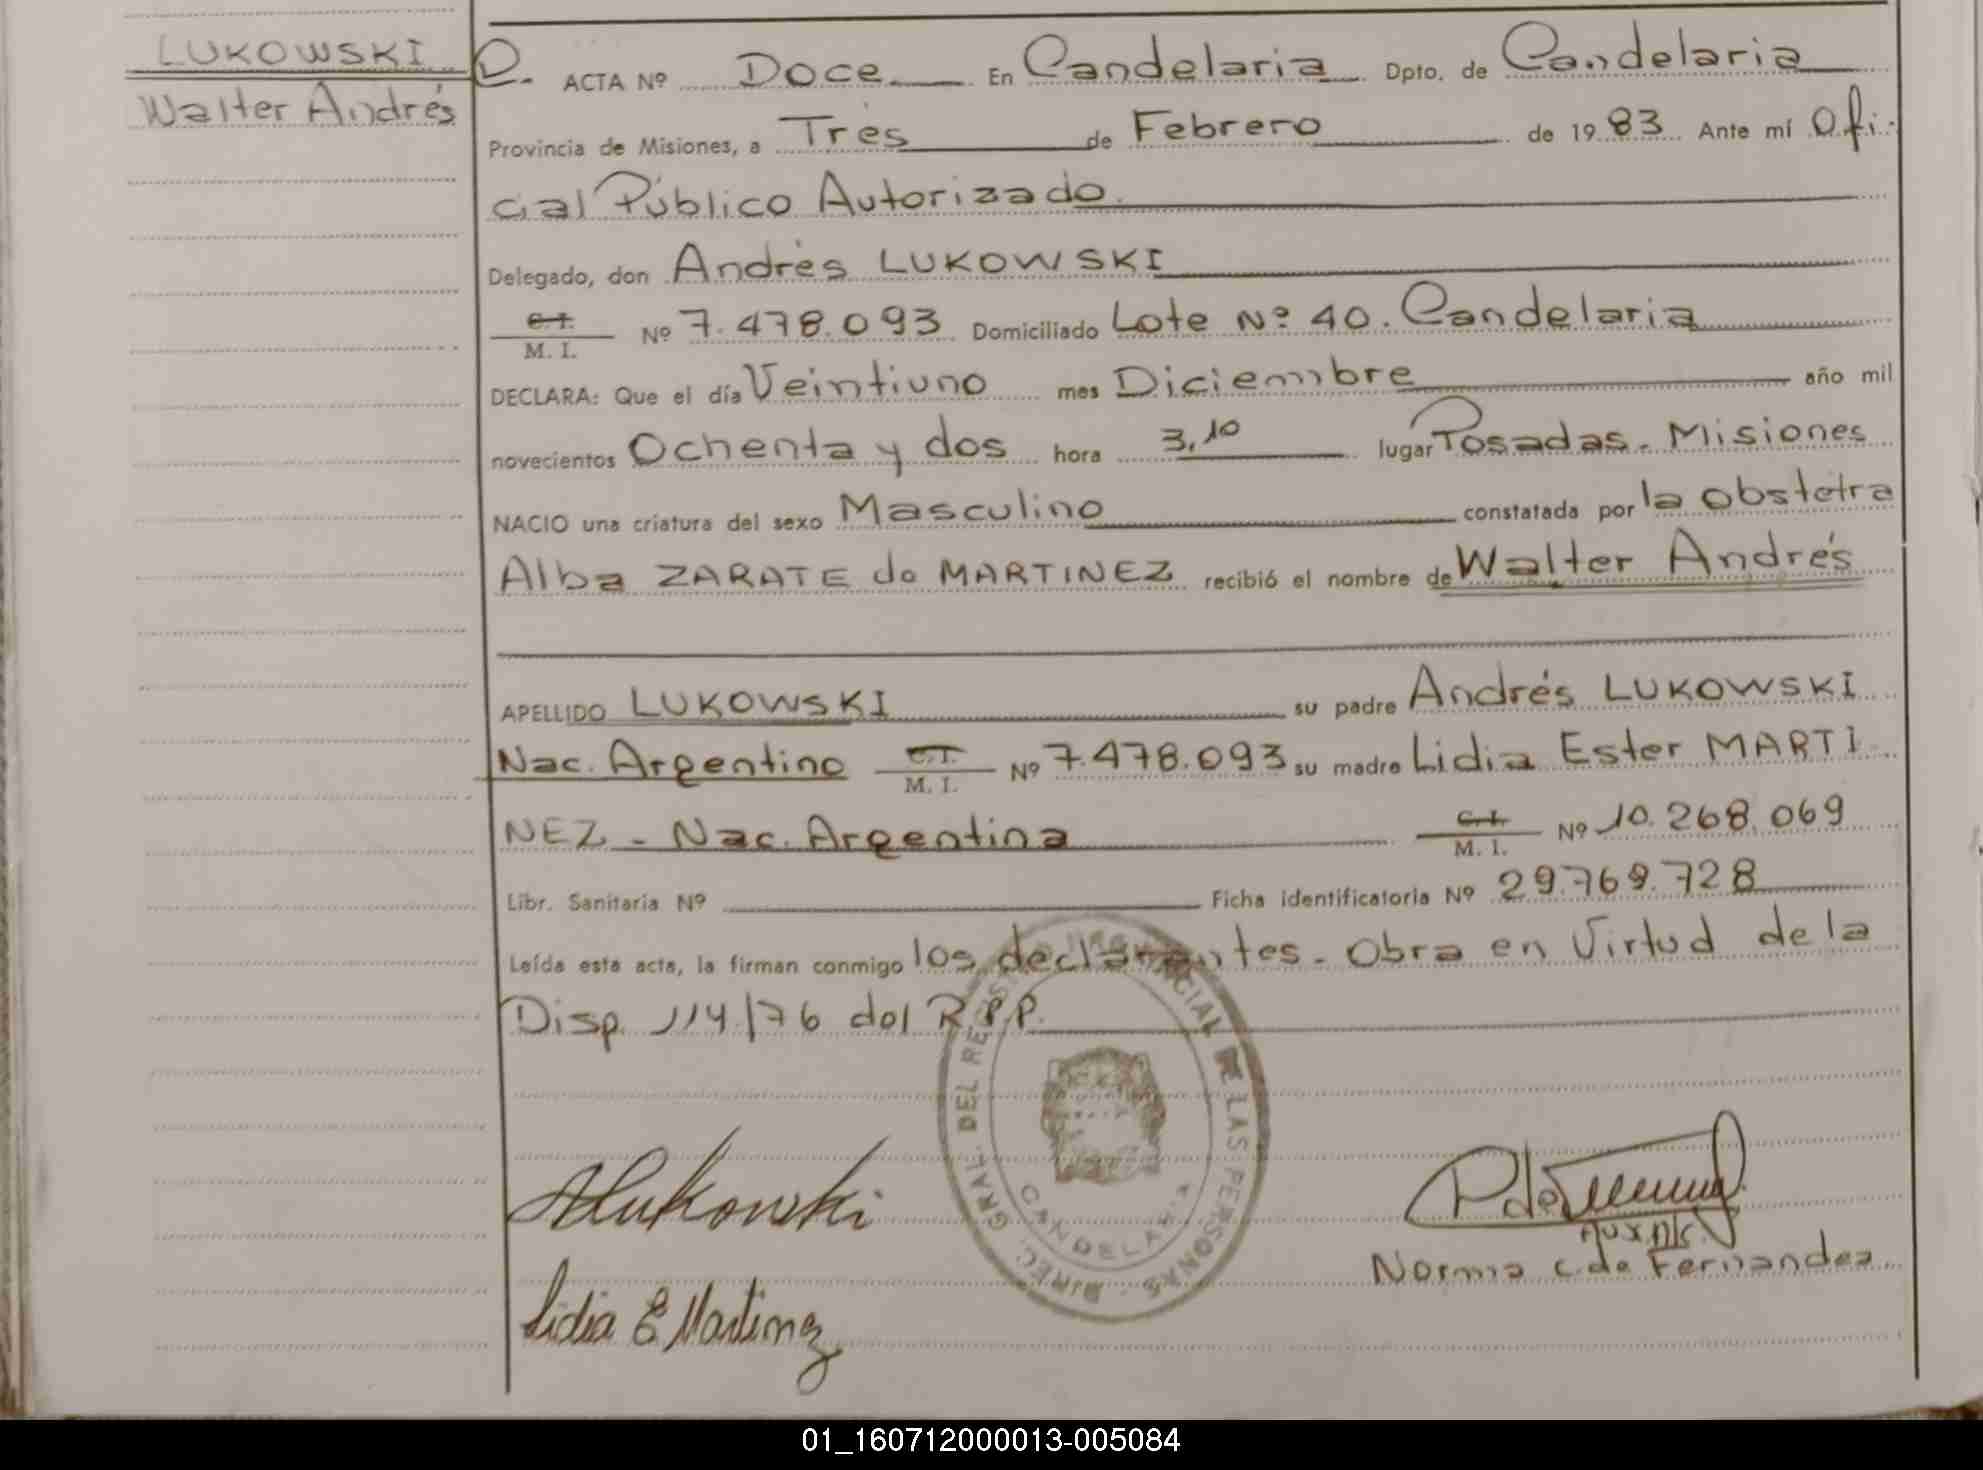 LUKOWSKI
Walter Andrés
D. ACTA Nº Doce En Candelaria Dpto. de Candelaria
Provincia de Misiones, a Tres de Febrero de 1983 Ante mí Ofi-
cial Público Autorizado.
Delegado, don Andrés LUKOWSKI
C.I. M. I. Nº 7.478.093 Domiciliado Lote Nº 40. Candelaria
DECLARA: Que el día Veintiuno mes Diciembre año mil
novecientos Ochenta y dos hora 3,10 lugar Posadas. Misiones
NACIO una criatura del sexo Masculino constatada por la obstetra
Alba ZARATE de MARTINEZ recibió el nombre de Walter Andrés
APELLIDO LUKOWSKI su padre Andrés LUKOWSKI
Nac. Argentino C.I. M. I. Nº 7.478.093 su madre Lidia Ester MARTI
NEZ - Nac. Argentina C.I. M. I. Nº 10.268.069
Libr. Sanitaria Nº Ficha identificatoria Nº 29.769.728
Leída esta acta, la firman conmigo los declarantes. Obra en Virtud de la
Disp. 114/76 del R.P.P.
DIREC. GRAL. DEL REGISTRO PROVINCIAL DE LAS PERSONAS
CANDELARIA
ALukowski
Lidia E Martinez
Norma C. de Fernandez
01_160712000013-005084